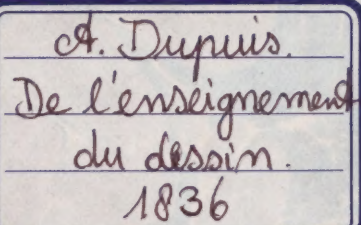 A. Dupuis.
De l'enseignement
du dessin.
1836